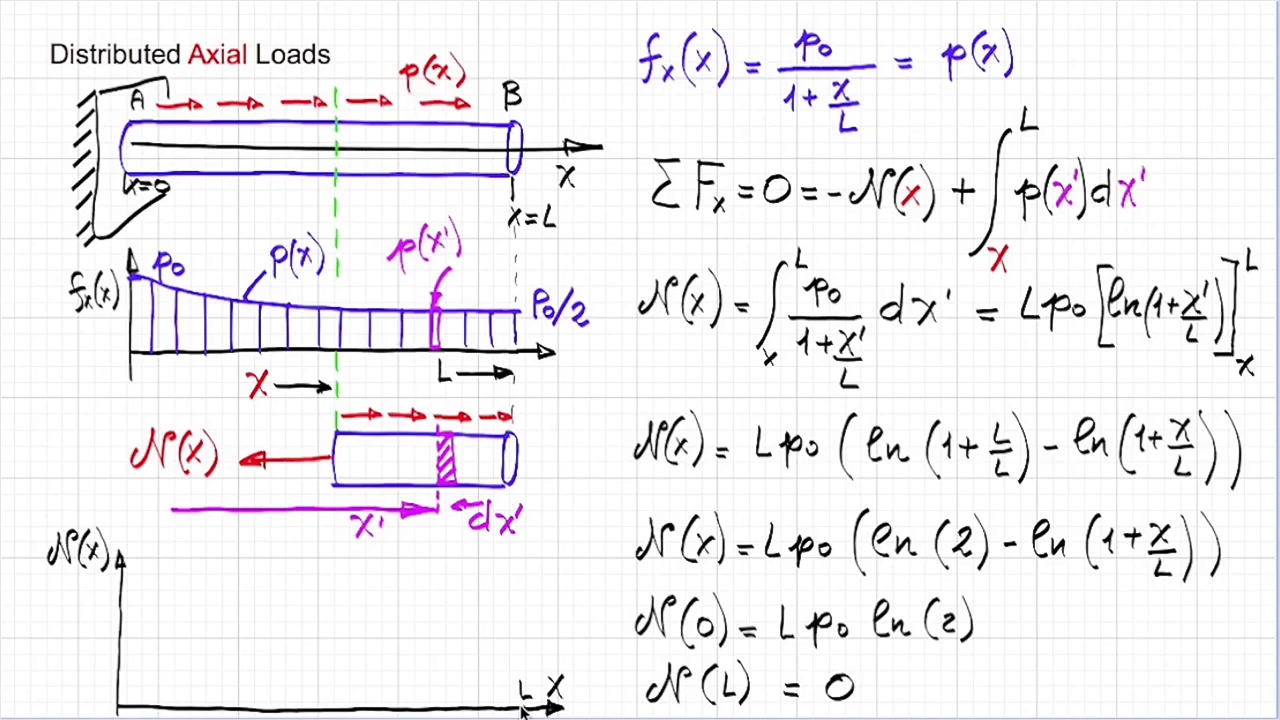 Distributed Axial Loads
p(x)
A
B
x=0
x
x=L
fₓ(x)
p₀
p(x)
p(x')
p₀/2
x
L
N(x)
x'
dx'
N(x)
L x
fₓ(x) = p₀/(1+x/L) = p(x)
ΣFₓ = 0 = -N(x) + ∫ₓᴸ p(x')dx'
N(x) = ∫ₓᴸ p₀/(1+x'/L) dx' = Lp₀[ln(1+x'/L)]ₓᴸ
N(x) = Lp₀(ln(1+L/L) - ln(1+x/L))
N(x) = Lp₀(ln(2) - ln(1+x/L))
N(0) = Lp₀ ln(2)
N(L) = 0